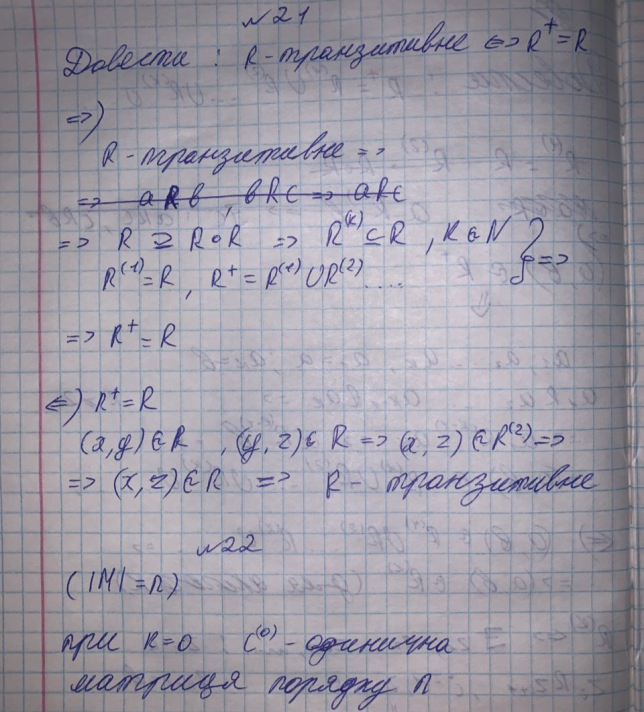 №21
Довести : R - транзитивне <=> R⁺ = R
=>)
R - транзитивне =>
=> aRb , bRc => aRc
=> R ⊇ R∘R => R⁽ᵏ⁾ ⊆ R , k ∈ N } =>
R⁽¹⁾ = R , R⁺ = R⁽¹⁾ ∪ R⁽²⁾ ....
=> R⁺ = R
<=) R⁺ = R
(x, y) ∈ R , (y, z) ∈ R => (x, z) ∈ R⁽²⁾ =>
=> (x, z) ∈ R => R - транзитивне
№22
(|M| = n)
при k = 0 C⁽⁰⁾ - одинична
матриця порядку n